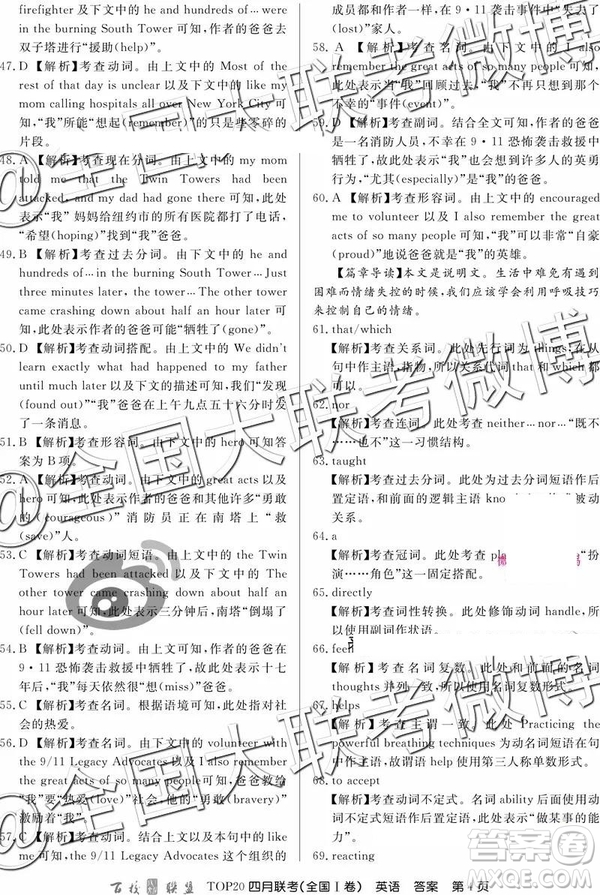 firefighter 及下文中的 he and hundreds of… were
in the burning South Tower 可知，作者的爸爸去
双子塔进行“援助(help)”。
47. D 【解析】考查动词。由上文中的 Most of the
rest of that day is unclear 以及下文中的 like my
mom calling hospitals all over New York City 可
知，“我”所能“想起(remember)”的只是些零碎的
片段。
48. A 【解析】考查现在分词。由上文中的 my mom
told me that the Twin Towers had been
attacked, and my dad had gone there 可知，此
处表示“我”妈妈给纽约市的所有医院都打了电话，
“希望(hoping)”找到“我”爸爸。
49. B 【解析】考查过去分词。由下文中的 he and
hundreds of… in the burning South Tower…Just
three minutes later, the tower…The other tower
came crashing down about half an hour later 可
知，此处表示作者的爸爸可能“牺牲了(gone)”。
50. D 【解析】考查动词搭配。由上文中的 We didn't
learn exactly what had happened to my father
until much later 以及下文可知，我们“发现
(found out)”“我”爸爸在上午九点五十六分时发
了一条消息。
51. B 【解析】考查形容词。由下文中的 hero 可知答
案为 B 项。
52. A 【解析】考查动词。由下文中的 great acts 以及
hero 可知，此处表示作者的爸爸和其他许多“勇敢
的(courageous)”消防员正在南塔上“救
(save)”人。
53. C 【解析】考查动词短语。由上文中的 the Twin
Towers had been attacked 以及下文中的 The
other tower came crashing down about half an
hour later 可知，此处表示三分钟后，南塔“倒塌了
(fell down)”。
54. A 【解析】考查动词。由上文可知，作者的爸爸在
9·11 恐怖袭击救援中牺牲了，故此处表示十七
年后，“我”仍然“想(miss)”爸爸。
55. C 【解析】考查名词。根据语境可知，此处表示对
社会的热爱。
56. D 【解析】考查名词。由下文中的 volunteer with
the 9/11 Legacy Advocates 以及下文中的
remember the great acts of so many people 可知，爸爸救给
“我”要“热爱(love)”和他的“勇敢(bravery)”
激励着“我”。
57. C 【解析】考查动词。由上文以及本句中的 I like
the 9/11 Legacy Advocates 可知，此处表示
成员都和作者一样，在 9·11 事件中“失去了
(lost)”
58. A 【解析】考查名词。由下文中的 I also
remember the great acts of so many people 可知，此
处表示当“我”回顾过去时，“我”不再只想到那
不幸的“事件(event)”。
59. D 【解析】考查副词。结合全文可知，作者的爸爸
是一名消防人员，不幸在 9·11 恐怖袭击救援中
牺牲了，“我”也会想到许多人的英勇
行为，“尤其(especially)”是“我”的爸爸。
60. A 【解析】考查形容词。由上文中的 encouraged
me to volunteer 以及 I also remember the great
acts of so many people 可知，“我”可以非常“自豪
(proud)”地说爸爸就是我的英雄。
【篇章导读】本文是说明文。生活中难免有遇到
因某件事而情绪失控的时候，我们应该学会利用呼吸技巧
来控制自己的情绪。
61. that/which
【解析】考查关系词。此处先行词为 things，在从
句中作主语，指物，所以关系代词 that 和 which 都
可以。
62. nor
【解析】考查连词。此处考查 neither…nor…“既不
……也不……”这一习惯结构。
63. taught
【解析】考查过去分词。此处过去分词短语作后
置定语，和前面的逻辑主语 kno
被动关系。
64. a
【解析】考查冠词。此处考查 pl “扮
演……角色”这一固定搭配。
65. directly
【解析】考查词性转换。此处修饰动词 handle，所
以使用副词作状语。
66. feel
【解析】考查名词复数。此处和前面的名词
thoughts 并列一致，所以使用名词复数形式。
67. helps
【解析】考查主谓一致。此处 Practicing the
powerful breathing techniques 为动名词短语在句
中作主语，故谓语 help 使用第三人称单数形式。
68. to accept
【解析】考查动词不定式。名词 ability 后面使用
动词不定式短语作后置定语，表示“做某事的能
力”。
69. reacting
百校联盟 TOP20 四月联考(全国Ⅰ卷) 英语 答案 第4页
@全国大联考微博
@全国大联考微博
@全国大联考微博